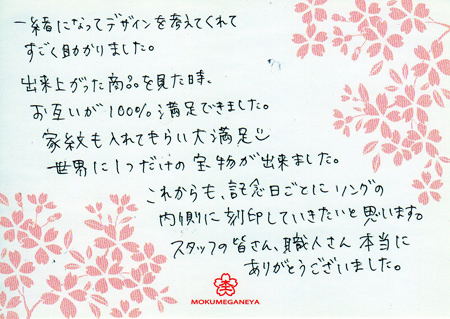 一緒になってデザインを考えてくれて
すごく助かりました。
出来上がった商品を見た時、
お互いが100%満足できました。
家紋も入れてもらい大満足
世界に1つだけの宝物が出来ました。
これからも、記念日ごとにリングの
内側に刻印していきたいと思います。
スタッフの皆さん、職人さん本当に
ありがとうございました。
MOKUMEGANEYA